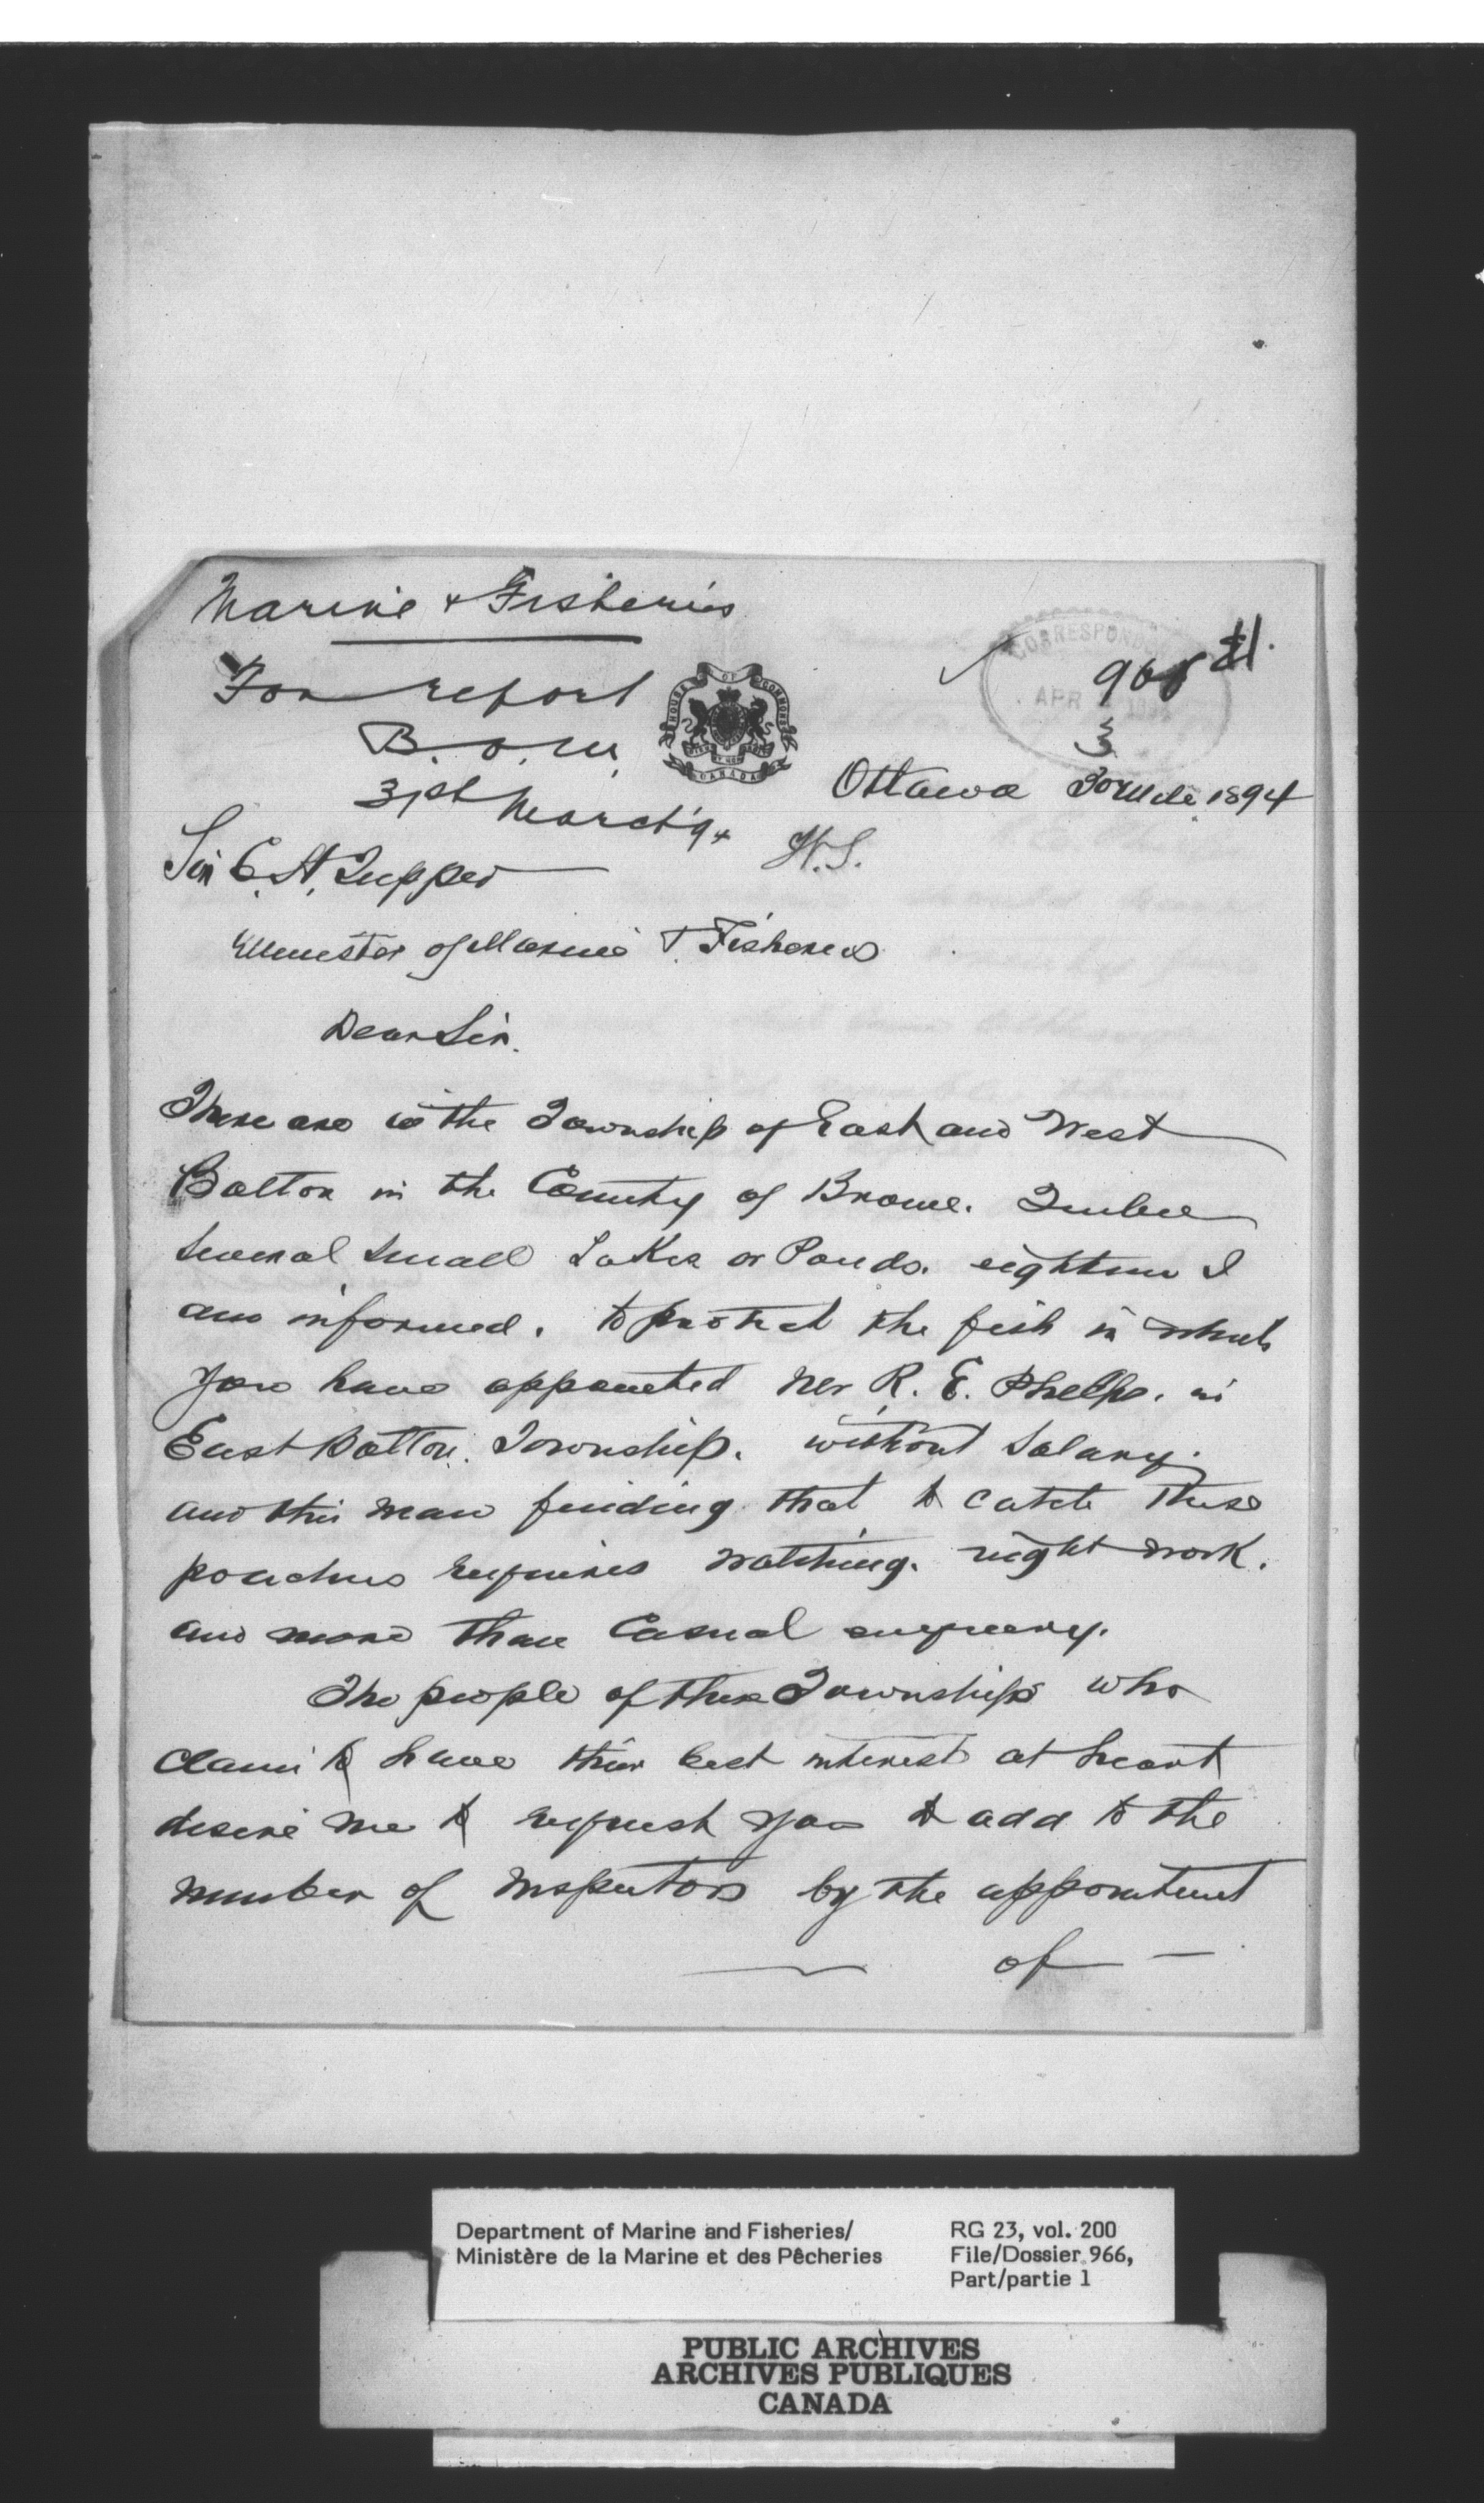 Marine & Fisheries
For report
B.
31st March '94
HOUSE OF COMMONS
CANADA
CORRESPOND
APR
966
3
Ottawa 30 Mch 1894
H.S.
Sir C. H. Tupper
Minister of Marine & Fisheries
Dear Sir.
There are in the Township of East and West
Bolton in the County of Brome. Quebec
several small Lakes or Ponds. eighteen I
am informed. to protect the fish in which
you have appointed Mr R. E. Phelps. in
East Bolton. Township. without Salary.
and this man finding that to catch these
poachers requires watching. night work.
and more than Casual enquiry.
The people of these Townships who
claim to have their best interest at heart
desire me to request you to add to the
number of Inspectors by the appointment
of —
Department of Marine and Fisheries/
Ministère de la Marine et des Pêcheries
RG 23, vol. 200
File/Dossier 966,
Part/partie 1
PUBLIC ARCHIVES
ARCHIVES PUBLIQUES
CANADA